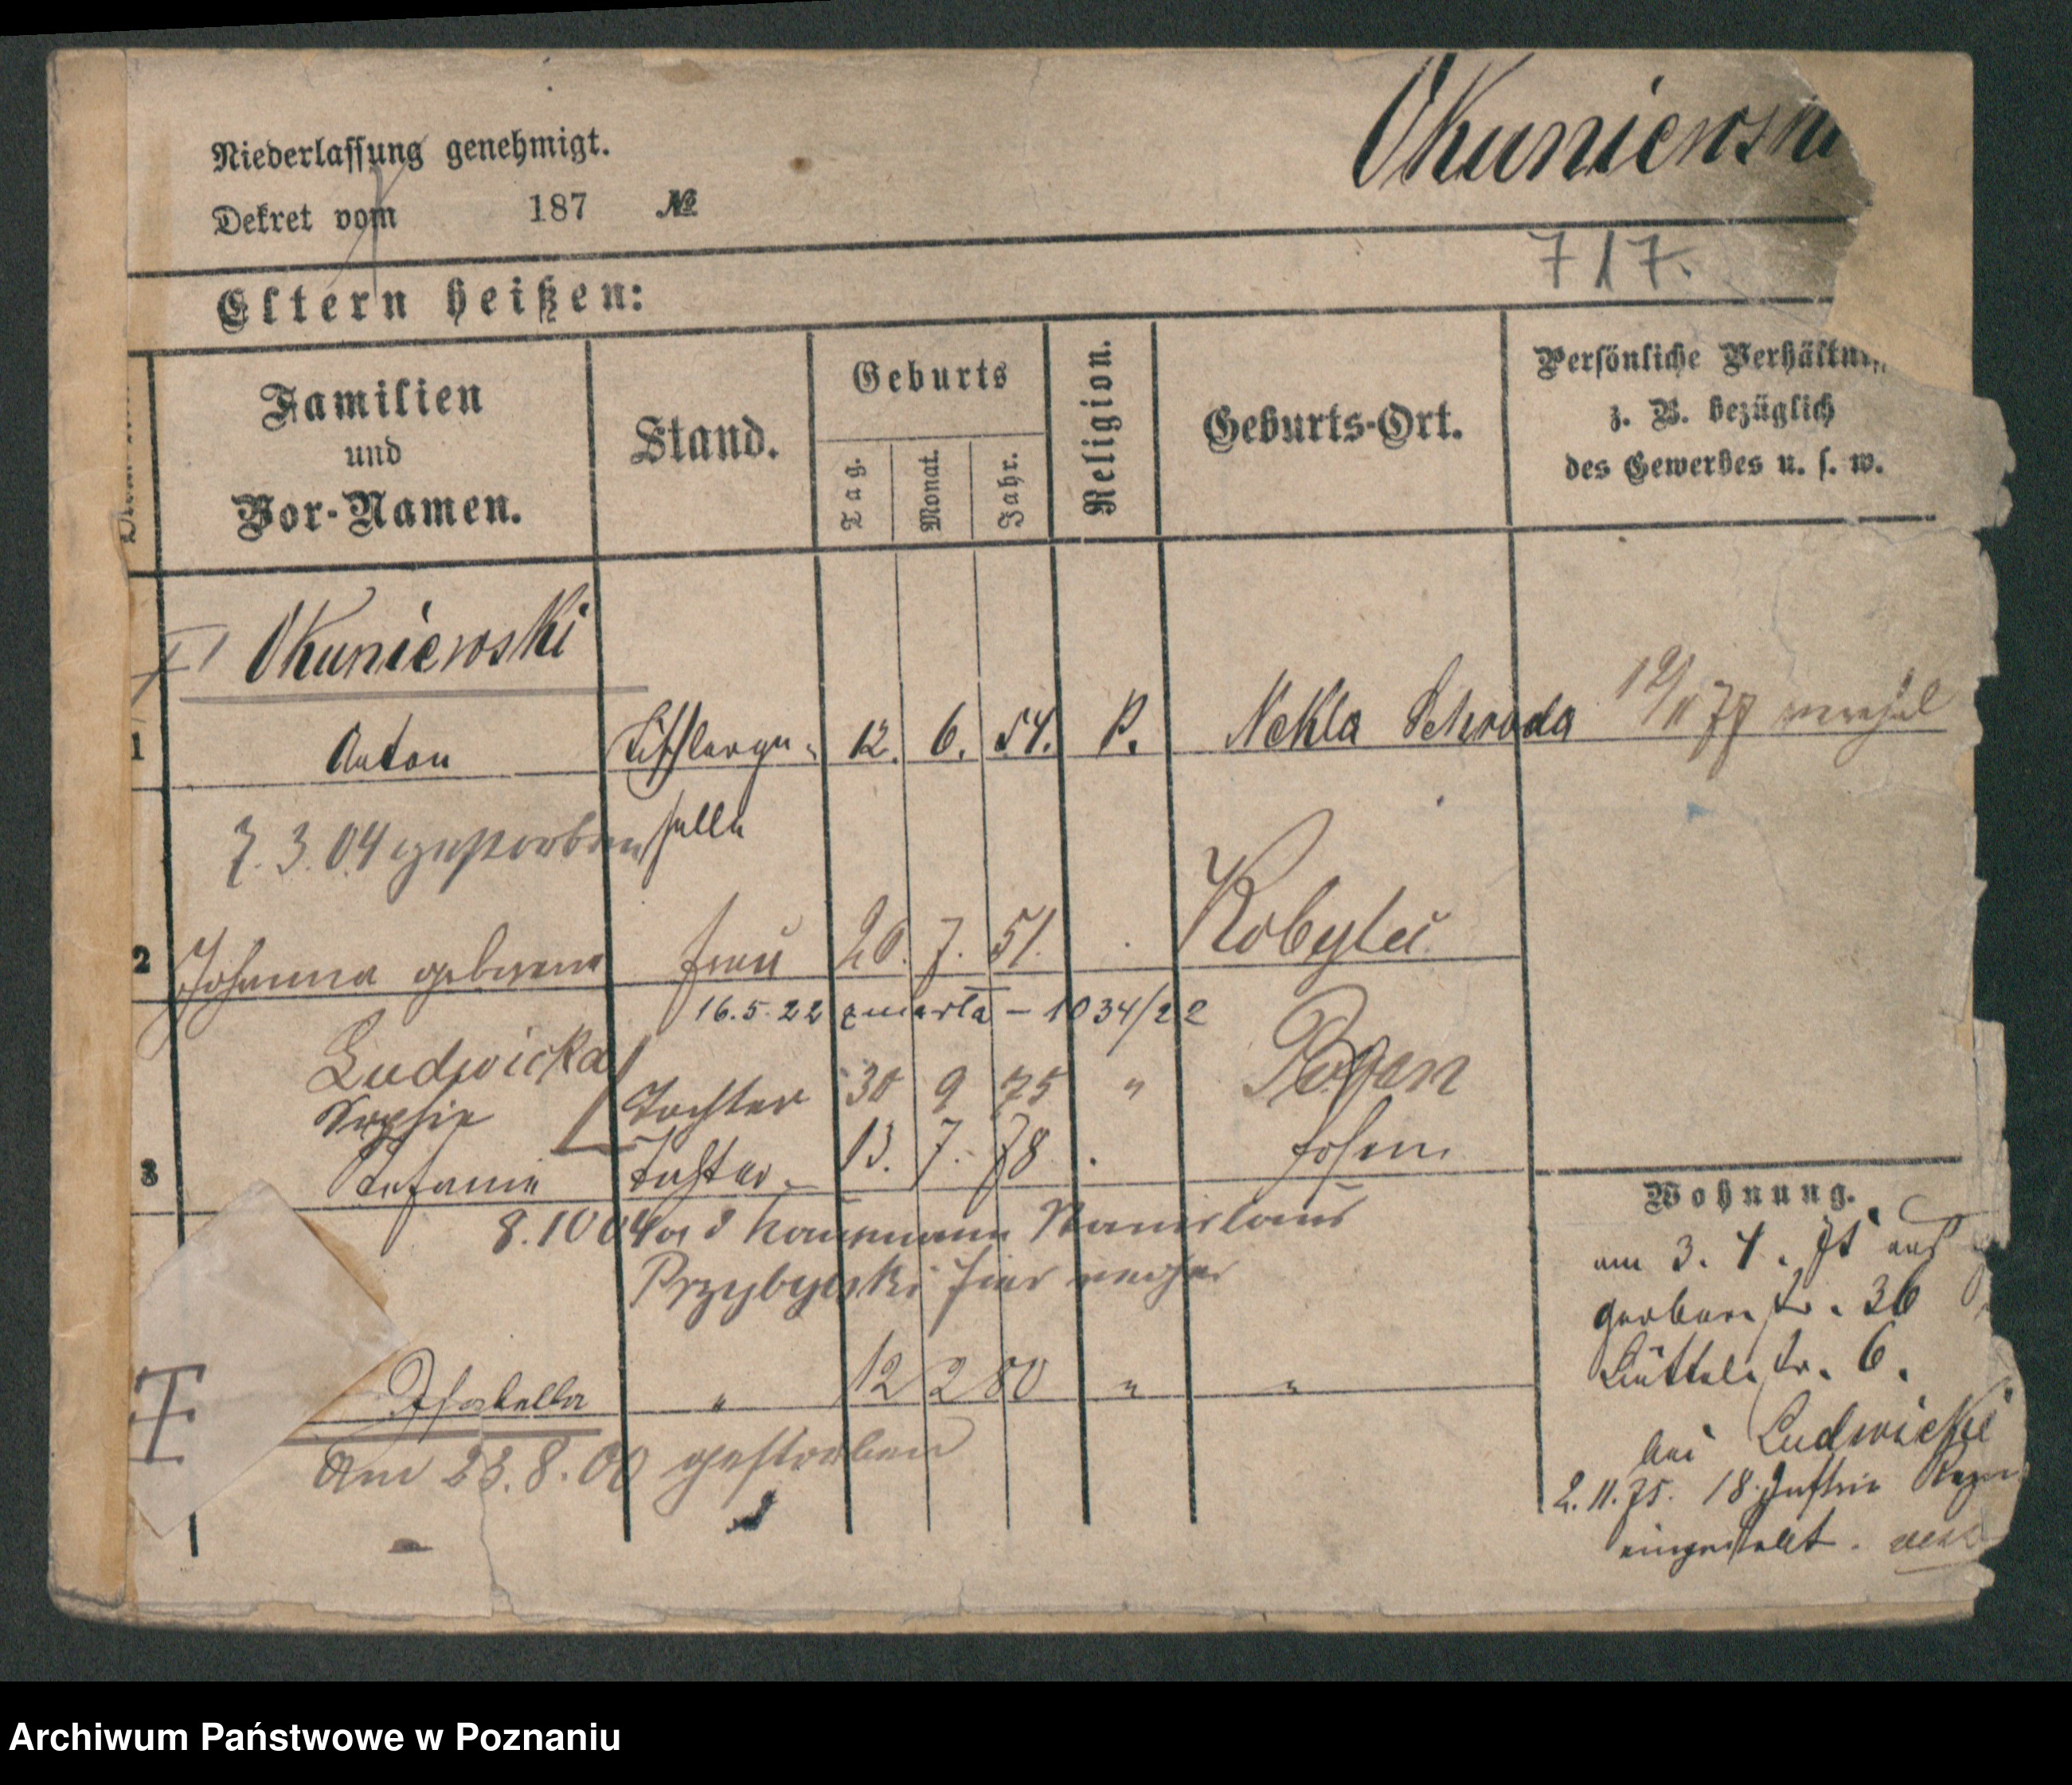 Niederlassung genehmigt.
Dekret vom 187 №
Okuniewski
717.
Eltern heißen:
Familien
und
Vor-Namen.
Stand.
Geburts
Tag.
Monat.
Jahr.
Religion.
Geburts-Ort.
Persönliche
z. B. bezüglich
des Gewerbes u. s. w.
Okuniewski
1 Anton Tischlerge= 12. 6. 54. K. Nekla Schroda
7.3.04 gestorben selle
2 Johanna geborene Frau 20. 7. 51.
16.5.22 zmarła – 1034/22
Ludwicka
Sophie Tochter 30 9 75 " Posen
3 Stefanie Tochter 13. 7. 78 Posen
8.10 04 Kaufmann Stanislaus
Przybylski hier
Isabella " 12 2 80 " "
Am 23.8.00 gestorben
Wohnung.
am 3. 4. 75 aus
Gerberstr. 36
Büttelstr. 6.
bei Ludwicki
2.11.75. 18.
eingestellt.
Archiwum Państwowe w Poznaniu